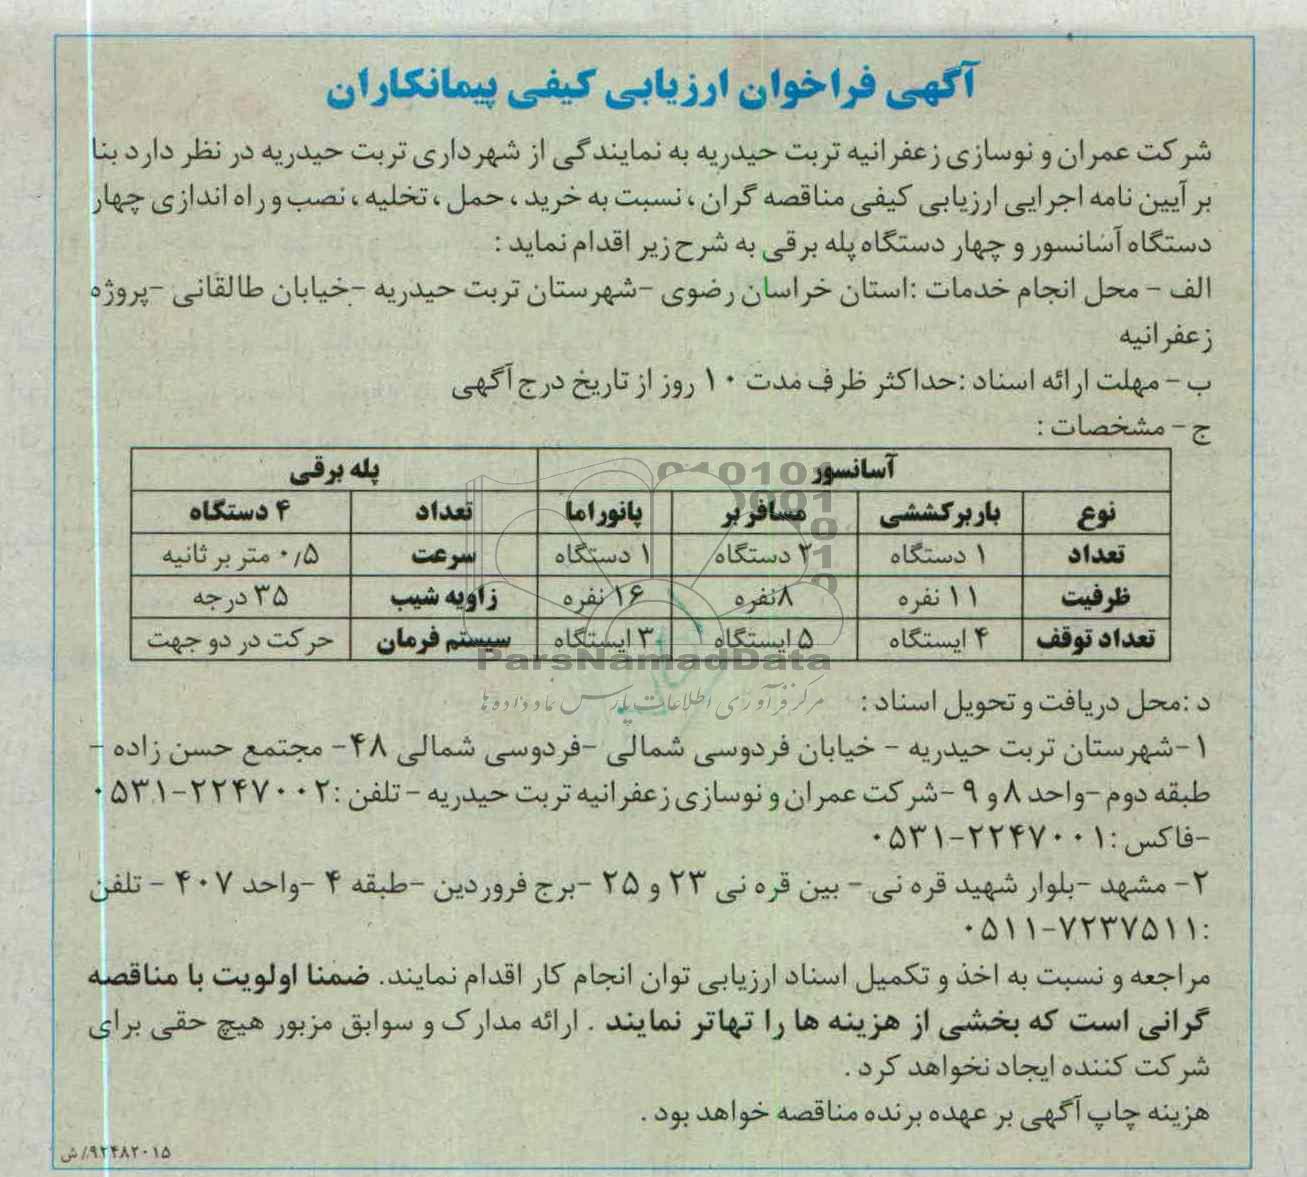 آگهی فراخوان ارزیابی کیفی پیمانکاران
شرکت عمران و نوسازی زعفرانیه تربت حیدریه به نمایندگی از شهرداری تربت حیدریه در نظر دارد بنا
بر آیین نامه اجرایی ارزیابی کیفی مناقصه گران ، نسبت به خرید ، حمل ، تخلیه ، نصب و راه اندازی چهار
دستگاه آسانسور و چهار دستگاه پله برقی به شرح زیر اقدام نماید :
الف - محل انجام خدمات :استان خراسان رضوی -شهرستان تربت حیدریه -خیابان طالقانی -پروژه
زعفرانیه
ب - مهلت ارائه اسناد :حداکثر ظرف مدت ۱۰ روز از تاریخ درج آگهی
ج - مشخصات :
آسانسور پله برقی
نوع باربرکششی مسافربر پانوراما تعداد ۴ دستگاه
تعداد ۱ دستگاه ۲ دستگاه ۱ دستگاه سرعت ۰/۵ متر بر ثانیه
ظرفیت ۱۱ نفره ۸نفره ۱۶ نفره زاویه شیب ۳۵ درجه
تعداد توقف ۴ ایستگاه ۵ ایستگاه ۳ ایستگاه سیستم فرمان حرکت در دو جهت
ParsNamadData
مرکز فرآوری اطلاعات پارس نماد داده ها
د :محل دریافت و تحویل اسناد :
۱-شهرستان تربت حیدریه - خیابان فردوسی شمالی -فردوسی شمالی ۴۸- مجتمع حسن زاده -
طبقه دوم -واحد ۸ و ۹ -شرکت عمران و نوسازی زعفرانیه تربت حیدریه - تلفن :۲۲۴۷۰۰۲-۰۵۳۱
-فاکس :۲۲۴۷۰۰۱-۰۵۳۱
۲- مشهد -بلوار شهید قره نی - بین قره نی ۲۳ و ۲۵ -برج فروردین -طبقه ۴ -واحد ۴۰۷ - تلفن
:۷۲۳۷۵۱۱-۰۵۱۱
مراجعه و نسبت به اخذ و تکمیل اسناد ارزیابی توان انجام کار اقدام نمایند. ضمنا اولویت با مناقصه
گرانی است که بخشی از هزینه ها را تهاتر نمایند . ارائه مدارک و سوابق مزبور هیچ حقی برای
شرکت کننده ایجاد نخواهد کرد .
هزینه چاپ آگهی بر عهده برنده مناقصه خواهد بود .
۹۲۴۸۲۰۱۵/ش